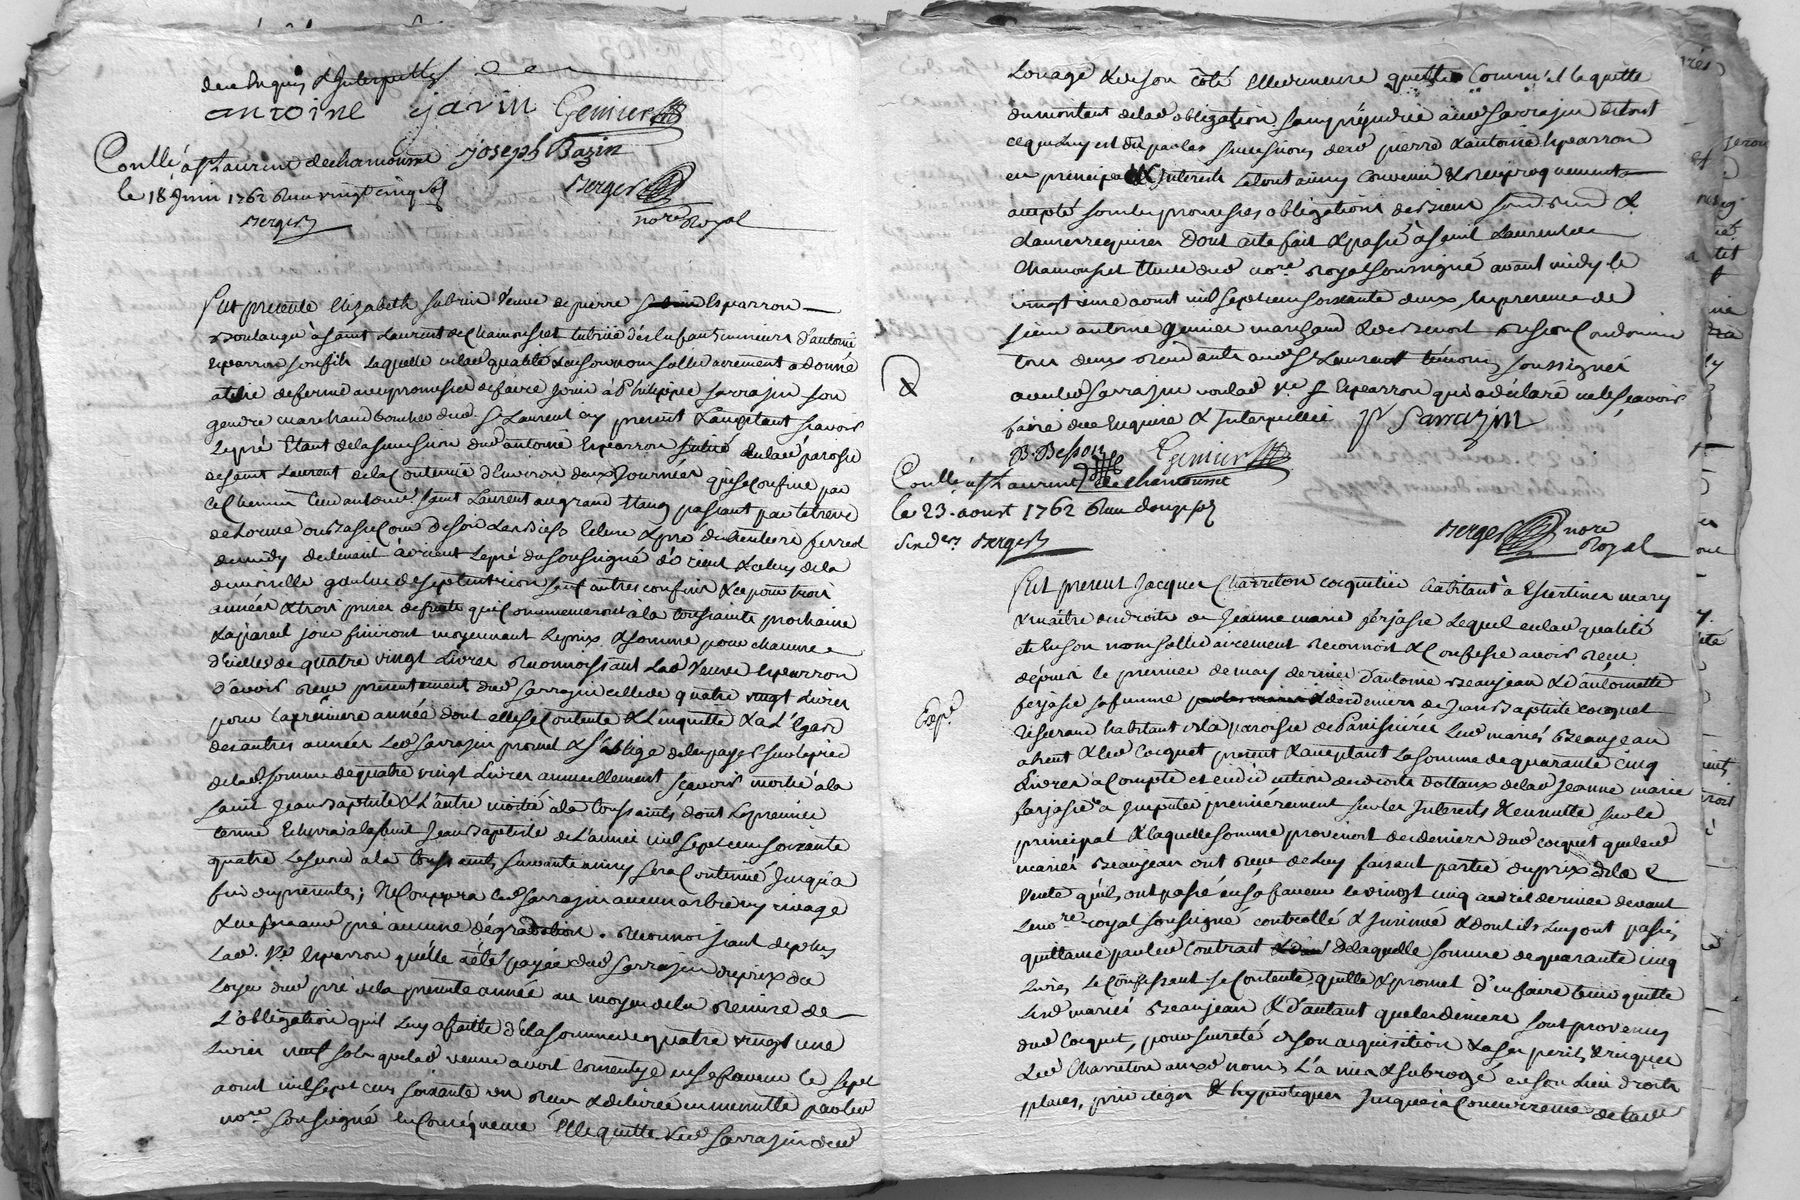 de ce Enquis & Interpellés
antoine javin Genier
joseph Bazin
Conllé à St Laurent de chamousset
le 18 Juin 1762 Reçu vingt cinq sols
Berger
Berger
nore Royal
Fut presente Elizabeth fabrin Veuve de pierre Esparron
Boulanger à saint Laurent de Chamousset tutrice d'esluse aux mineurs d'antoine
Esparron son fils Laquelle en lad qualité & en son nom sollidairement a donné
a titre de ferme avec promesse de faire jouir à Philippe sarrazin son
gendre marchand Boucher dud. St Laurent cy present & acceptant scavoir
Le pré Etant de la succession dud antoine Esparron situé en lad paroisse
de saint Laurent de la Contenue d'Environ deux Journées qui se confine par
Le Chemin tendant dud saint Laurent au grand Etang passant par la terre
de midy Le pré du soussigné d'orient & celuy de la
demoiselle de septentrion sauf autres confins & ce pour trois
années & trois prises de fruits qui Commenceront à la toussaints prochaine
& à pareil jour finiront moyennant Le prix & somme pour chacune
d'icelles de quatre vingt Livres Reconnoissant Lad Veuve Esparron
d'avoir Reçu presentement dud sarrazin celle de quatre vingt Livres
pour La premiere année dont elle se Contente & L'en quitte & à L'Egard
des autres années Led sarrazin promet & s'oblige de luy payer
de lad somme de quatre vingt Livres annuellement sçavoir moitié à la
saint Jean Baptiste & L'autre moitié à la toussaints, dont Le premier
terme Echerra à la saint Jean Baptiste de L'année mil sept cens soixante
quatre Le second à la toussaints suivante ainsy sera Continué Jusqu'a
fin du present; Ne Couppera Led sarrazin aucun arbre ny
& ne fera aud pré aucune dégradation. Reconnoissant de plus
Lad. Ve Esparron qu'elle a été payée dud sarrazin du prix du
Loyer dud pré de la presente année au moyen de la Remise de
L'obligation qu'il Luy a faitte de la somme de quatre vingt une
Livres neuf sols que lad veuve avoit Consenty en sa faveur le sept
aoust mil sept cens soixante un Reçu & delivrée en minutte par led
nore soussigné En Conséquence Elle quitte Led sarrazin dud
Louage & de son côté Elle demeure quitte Comm'il la quitte
du montant de lad obligation sans préjudice aud sarrazin de tout
ce qui luy est dû par les successions desd pierre & antoine Esparron
en principal & Interests Le tout ainsy Convenu & Reciproquement
accepté sous les promesses obligations de Biens
Clauses requises Dont acte fait & passé à saint Laurent de
Chamousset Etude dud nore Royal soussigné avant midy le
vingtieme aoust mil sept cens soixante deux, En presence de
sieur antoine Genier marchand & de Benoit Besson Cordonnier
tous deux Residants aud St Laurent témoins soussignés
avec led sarrazin non lad Ve Esparron qui a déclaré ne le sçavoir
faire de ce Enquise & Interpellée P sarrazin
B. Besson Genier
Conllé à St Laurent de chamousset
le 23. aoust 1762 Reçu douze sols
six den Berger
Berger nore
Royal
Expé
Fut present Jacques Charreton coquetier habitant à Essertines mary
& maître des droits de Jeanne marie ferjasse Lequel en lad qualité
et En son nom sollidairement Reconnoit & Confesse avoir Reçu
dépuis le premier de may dernier d'antoine Beaujean & d'antoinette
ferjasse sa femme des deniers de Jean Baptiste Cocquet
Tisserand habitant en la paroisse de Panissieres Lesd mariés Beaujean
absent & led Cocquet present & acceptant La somme de quarante cinq
Livres à Compte et en déduction des droits Dottaux de lad Jeanne marie
ferjasse à Imputer premiérement sur les Interests & ensuitte sur le
principal & laquelle somme provenoit des deniers dud Cocquet que lesd
mariés Beaujean ont Reçu de Luy faisant partie du prix de la
Vente qu'ils ont passé en sa faveur Le vingt cinq avril dernier devant
Le nore royal soussigné controllé & Insinué & dont ils Luy ont passés
quittance par led Contrat de laquelle somme de quarante cinq
Livres, Le Confessant se Contente, quitte & promet d'en faire tenir quitte
Lesd mariés Beaujean & d'autant que les deniers sont provenus
dud Cocquet, pour sureté de son acquisition & à ses perils & risques
Led Charreton auxd noms L'a mis & subrogé en son Lieu droits
places, privileges & hypoteques Jusques à Concurrence de lad